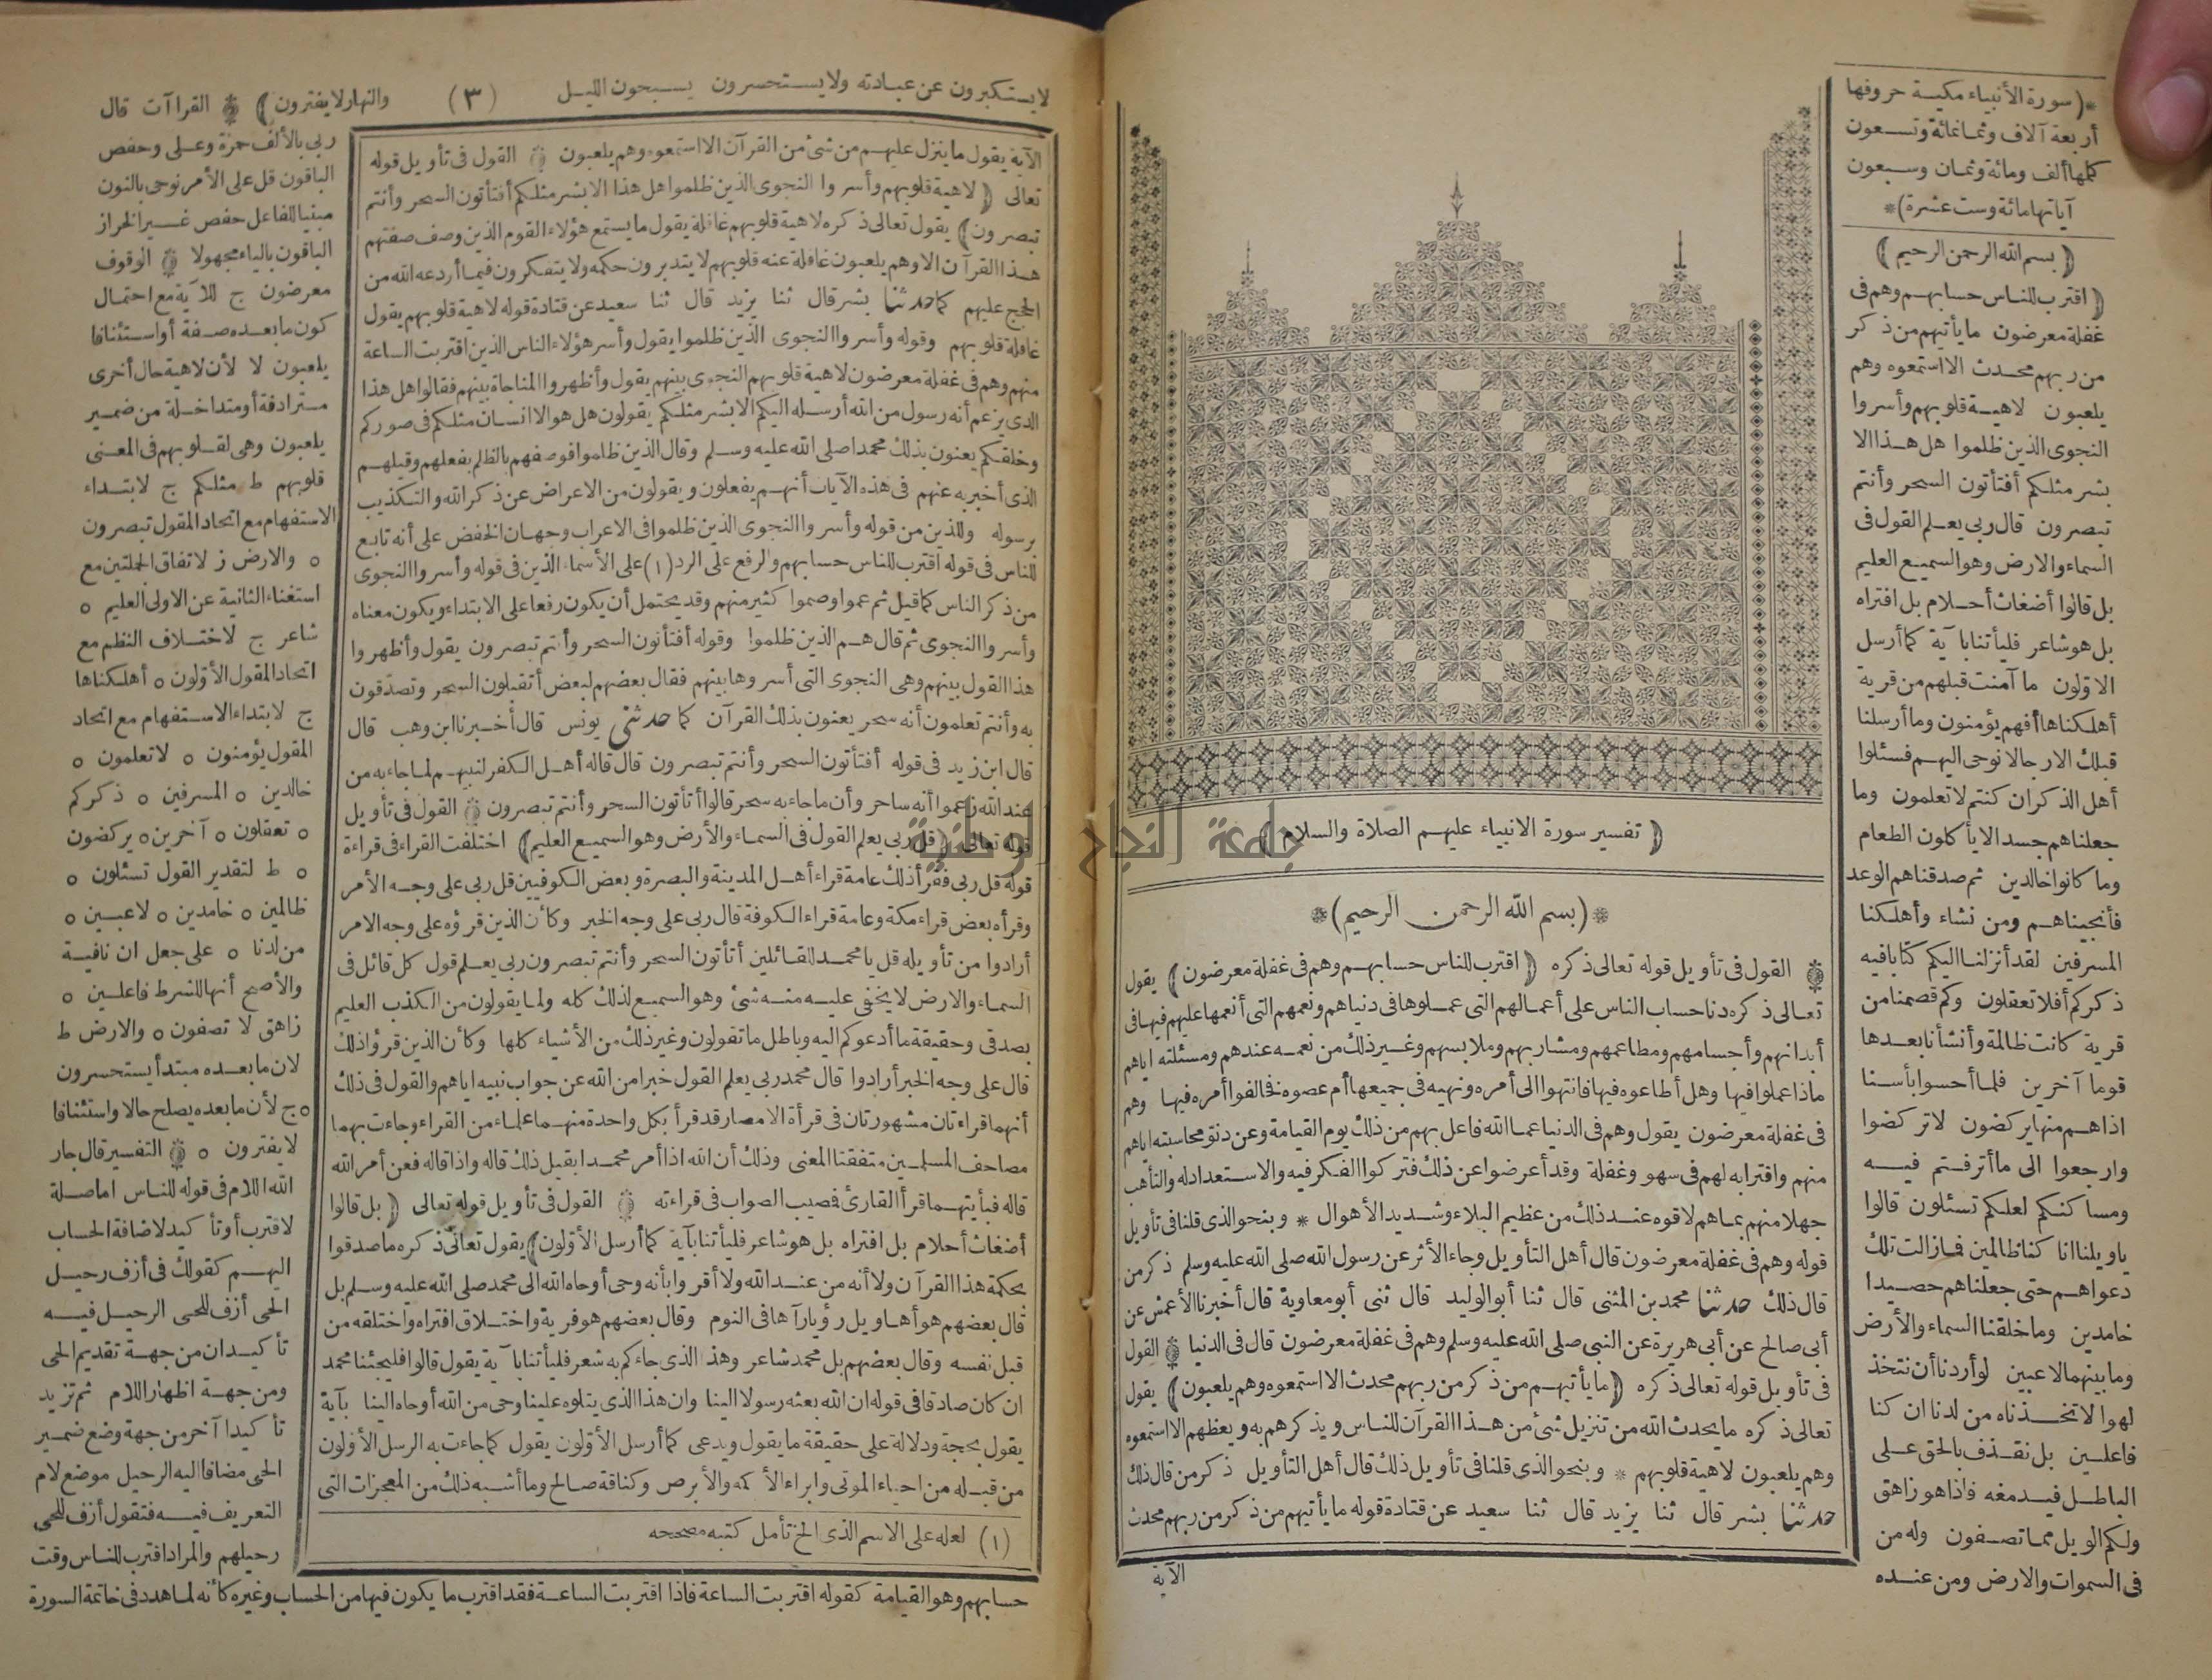 *(سورة الأنبياء مكية حروفها
أربعة آلاف وثمانمائة وتسعون
كلمها ألف ومائة وثمان وسبعون
آياتها مائة وست عشرة)*
(بسم الله الرحمن الرحيم)
(اقترب للناس حسابهم وهم فى
غفلة معرضون ما يأتيهم من ذكر
من ربهم محدث الا استمعوه وهم
يلعبون لاهية قلوبهم وأسروا
النجوى الذين ظلموا هل هذا الا
بشر مثلكم أفتأتون السحر وأنتم
تبصرون قال ربى يعلم القول فى
السماء والارض وهو السميع العليم
بل قالوا أضغاث أحلام بل افتراه
بل هو شاعر فليأتنا بآية كما أرسل
الاولون ما آمنت قبلهم من قرية
أهلكناها أفهم يؤمنون وما أرسلنا
قبلك الا رجالا نوحى اليهم فسئلوا
أهل الذكر ان كنتم لا تعلمون وما
جعلناهم جسدا لا يأكلون الطعام
وما كانوا خالدين ثم صدقناهم الوعد
فأنجيناهم ومن نشاء وأهلكنا
المسرفين لقد أنزلنا اليكم كتابا فيه
ذكركم أفلا تعقلون وكم قصمنا من
قرية كانت ظالمة وأنشأنا بعدها
قوما آخرين فلما أحسوا بأسنا
اذا هم منها يركضون لا تركضوا
وارجعوا الى ما أترفتم فيه
ومساكنكم لعلكم تسئلون قالوا
ياويلنا انا كنا ظالمين فما زالت تلك
دعواهم حتى جعلناهم حصيدا
خامدين وما خلقنا السماء والأرض
وما بينهما لاعبين لو أردنا أن نتخذ
لهوا لاتخذناه من لدنا ان كنا
فاعلين بل نقذف بالحق على
الباطل فيدمغه فاذا هو زاهق
ولكم الويل مما تصفون وله من
فى السموات والارض ومن عنده
(تفسير سورة الانبياء عليهم الصلاة والسلام)
*(بسم الله الرحمن الرحيم)*
القول فى تأويل قوله تعالى ذكره (اقترب للناس حسابهم وهم فى غفلة معرضون) يقول
تعالى ذكره دنا حساب الناس على أعمالهم التى عملوها فى دنياهم ونعمهم التى أنعمها عليهم فيها فى
أبدانهم وأجسامهم ومطاعمهم ومشاربهم وملابسهم وغير ذلك من نعمه عندهم ومسئلته اياهم
ماذا عملوا فيها وهل أطاعوه فيها فانتهوا الى أمره ونهيه فى جميعها أم عصوه فخالفوا أمره فيها وهم
فى غفلة معرضون يقول وهم فى الدنيا عما الله فاعل بهم من ذلك يوم القيامة وعن دنو محاسبته اياهم
منهم واقترابه لهم فى سهو وغفلة وقد أعرضوا عن ذلك فتركوا الفكر فيه والاستعداد له والتأهب
جهلا منهم بما هم لاقوه عند ذلك من عظيم البلاء وشديد الأهوال * وبنحو الذى قلنا فى تأويل
قوله وهم فى غفلة معرضون قال أهل التأويل وجاء الأثر عن رسول الله صلى الله عليه وسلم ذكر من
قال ذلك حدثنا محمد بن المثنى قال ثنا أبو الوليد قال ثنى أبو معاوية قال أخبرنا الأعمش عن
أبى صالح عن أبى هريرة عن النبى صلى الله عليه وسلم وهم فى غفلة معرضون قال فى الدنيا القول
فى تأويل قوله تعالى ذكره (ما يأتيهم من ذكر من ربهم محدث الا استمعوه وهم يلعبون) يقول
تعالى ذكره ما يحدث الله من تنزيل شئ من هذا القرآن للناس ويذكرهم به ويعظهم الا استمعوه
وهم يلعبون لاهية قلوبهم * وبنحو الذى قلنا فى تأويل ذلك قال أهل التأويل ذكر من قال ذلك
حدثنا بشر قال ثنا يزيد قال ثنا سعيد عن قتادة قوله ما يأتيهم من ذكر من ربهم محدث
الآية
لا يستكبرون عن عبادته ولا يستحسرون يسبحون الليل (٣) والنهار لا يفترون) القراآت قال
الآية يقول ما ينزل عليهم من شئ من القرآن الا استمعوه وهم يلعبون القول فى تأويل قوله
تعالى (لاهية قلوبهم وأسروا النجوى الذين ظلموا هل هذا الا بشر مثلكم أفتأتون السحر وأنتم
تبصرون) يقول تعالى ذكره لاهية قلوبهم غافلة يقول ما يستمع هؤلاء القوم الذين وصف صفتهم
هذا القرآن الا وهم يلعبون غافلة عنه قلوبهم لا يتدبرون حكمه ولا يتفكرون فيما أردعه الله من
الحجج عليهم كما حدثنا بشر قال ثنا يزيد قال ثنا سعيد عن قتادة قوله لاهية قلوبهم يقول
غافلة قلوبهم وقوله وأسروا النجوى الذين ظلموا يقول وأسر هؤلاء الناس الذين اقتربت الساعة
منهم وهم فى غفلة معرضون لاهية قلوبهم النجوى بينهم يقول وأظهروا المناجاة بينهم فقالوا هل هذا
الذى يزعم أنه رسول من الله أرسله اليكم الا بشر مثلكم يقولون هل هو الا انسان مثلكم فى صوركم
وخلقكم يعنون بذلك محمدا صلى الله عليه وسلم وقال الذين ظلموا فوصفهم بالظلم بفعلهم وقيلهم
الذى أخبر به عنهم فى هذه الآيات أنهم يفعلون ويقولون من الاعراض عن ذكر الله والتكذيب
برسوله وللذين من قوله وأسروا النجوى الذين ظلموا فى الاعراب وجهان الخفض على أنه تابع
للناس فى قوله اقترب للناس حسابهم والرفع على الرد (١) على الأسماء الذين فى قوله وأسروا النجوى
من ذكر الناس كما قيل ثم عموا وصموا كثير منهم وقد يحتمل أن يكون رفعا على الابتداء ويكون معناه
وأسروا النجوى ثم قال هم الذين ظلموا وقوله أفتأتون السحر وأنتم تبصرون يقول وأظهروا
هذا القول بينهم وهى النجوى التى أسروها بينهم فقال بعضهم لبعض أتقبلون السحر وتصدقون
به وأنتم تعلمون أنه سحر يعنون بذلك القرآن كما حدثنى يونس قال أخبرنا ابن وهب قال
قال ابن زيد فى قوله أفتأتون السحر وأنتم تبصرون قال قاله أهل الكفر لنبيهم لما جاء به من
عند الله زعموا أنه ساحر وأن ما جاء به سحر قالوا أتأتون السحر وأنتم تبصرون القول فى تأويل
قوله تعالى (قل ربى يعلم القول فى السماء والأرض وهو السميع العليم) اختلفت القراء فى قراءة
قوله قل ربى فقرأ ذلك عامة قراء أهل المدينة والبصرة وبعض الكوفيين قل ربى على وجه الأمر
وقرأه بعض قراء مكة وعامة قراء الكوفة قال ربى على وجه الخبر وكأن الذين قرؤه على وجه الامر
أرادوا من تأويله قل يا محمد للقائلين أتأتون السحر وأنتم تبصرون ربى يعلم قول كل قائل فى
السماء والارض لا يخفى عليه منه شئ وهو السميع لذلك كله ولما يقولون من الكذب العليم
بصدقى وحقيقة ما أدعوكم اليه وباطل ما تقولون وغير ذلك من الأشياء كلها وكأن الذين قرؤا ذلك
قال على وجه الخبر أرادوا قال محمد ربى يعلم القول خبرا من الله عن جواب نبيه اياهم والقول فى ذلك
أنهما قراءتان مشهورتان فى قرأة الامصار قد قرأ بكل واحدة منهما علماء من القراء وجاءت بهما
مصاحف المسلمين متفقتا المعنى وذلك أن الله اذا أمر محمدا بقيل ذلك قاله واذا قاله فعن أمر الله
قاله فبأيتهما قرأ القارئ فصيب الصواب فى قراءته القول فى تأويل قوله تعالى (بل قالوا
أضغاث أحلام بل افتراه بل هو شاعر فليأتنا بآية كما أرسل الأولون) يقول تعالى ذكره ما صدقوا
بحكمة هذا القرآن ولا أنه من عند الله ولا أقروا بأنه وحى أوحاه الله الى محمد صلى الله عليه وسلم بل
قال بعضهم هو أهاويل رؤيا رآها فى النوم وقال بعضهم هو فرية واختلاق افتراه واختلقه من
قبل نفسه وقال بعضهم بل محمد شاعر وهذا الذى جاءكم به شعر فليأتنا بآية يقول قالوا فليجئنا محمد
ان كان صادقا فى قوله ان الله بعثه رسولا الينا وان هذا الذى يتلوه علينا وحى من الله أوحاه الينا بآية
يقول بحجة ودلالة على حقيقة ما يقول ويدعى كما أرسل الأولون يقول كما جاءت به الرسل الأولون
من قبله من احياء الموتى وابراء الأكمه والأبرص وكناقة صالح وما أشبه ذلك من المعجزات التى
(١) لعله على الاسم الذى الخ تأمل كتبه مصححه
ربى بالألف حمزة وعلى وحفص
الباقون قل على الأمر نوحى بالنون
مبنيا للفاعل حفص غير الخراز
الباقون بالياء مجهولا الوقوف
معرضون ج للآية مع احتمال
كون ما بعده صفة أو استئنافا
يلعبون لا لأن لاهية حال أخرى
مترادفة أو متداخلة من ضمير
يلعبون وهى لقلوبهم فى المعنى
قلوبهم ط مثلكم ج لابتداء
الاستفهام مع اتحاد المقول تبصرون
ه والارض ز لاتفاق الجملتين مع
استغناء الثانية عن الاولى العليم ه
شاعر ج لاختلاف النظم مع
اتحاد المقول الأولون ه أهلكناها
ج لابتداء الاستفهام مع اتحاد
المقول يؤمنون ه لا تعلمون ه
خالدين ه المسرفين ه ذكركم
ه تعقلون ه آخرين ه يركضون
ه ط لتقدير القول تسئلون ه
ظالمين ه خامدين ه لاعبين ه
من لدنا ه على جعل ان نافية
والأصح أنها للشرط فاعلين ه
زاهق لا تصفون ه والارض ط
لان ما بعده مبتدأ يستحسرون
ه ج لأن ما بعده يصلح حالا واستئنافا
لا يفترون ه التفسير قال جار
الله اللام فى قوله للناس اما صلة
لاقترب أو تأكيد لاضافة الحساب
اليهم كقولك فى أزف رحيل
الحى أزف للحى الرحيل فيه
تأكيدان من جهة تقديم الحى
ومن جهة اظهار اللام ثم تزيد
تأكيدا آخر من جهة وضع ضمير
الحى مضافا اليه الرحيل موضع لام
التعريف فيه فتقول أزف للحى
رحيلهم والمراد اقترب للناس وقت
حسابهم وهو القيامة كقوله اقتربت الساعة فاذا اقتربت الساعة فقد اقترب ما يكون فيها من الحساب وغيره كأنه لما هدد فى خاتمة السورة
جامعة النجاح الوطنية